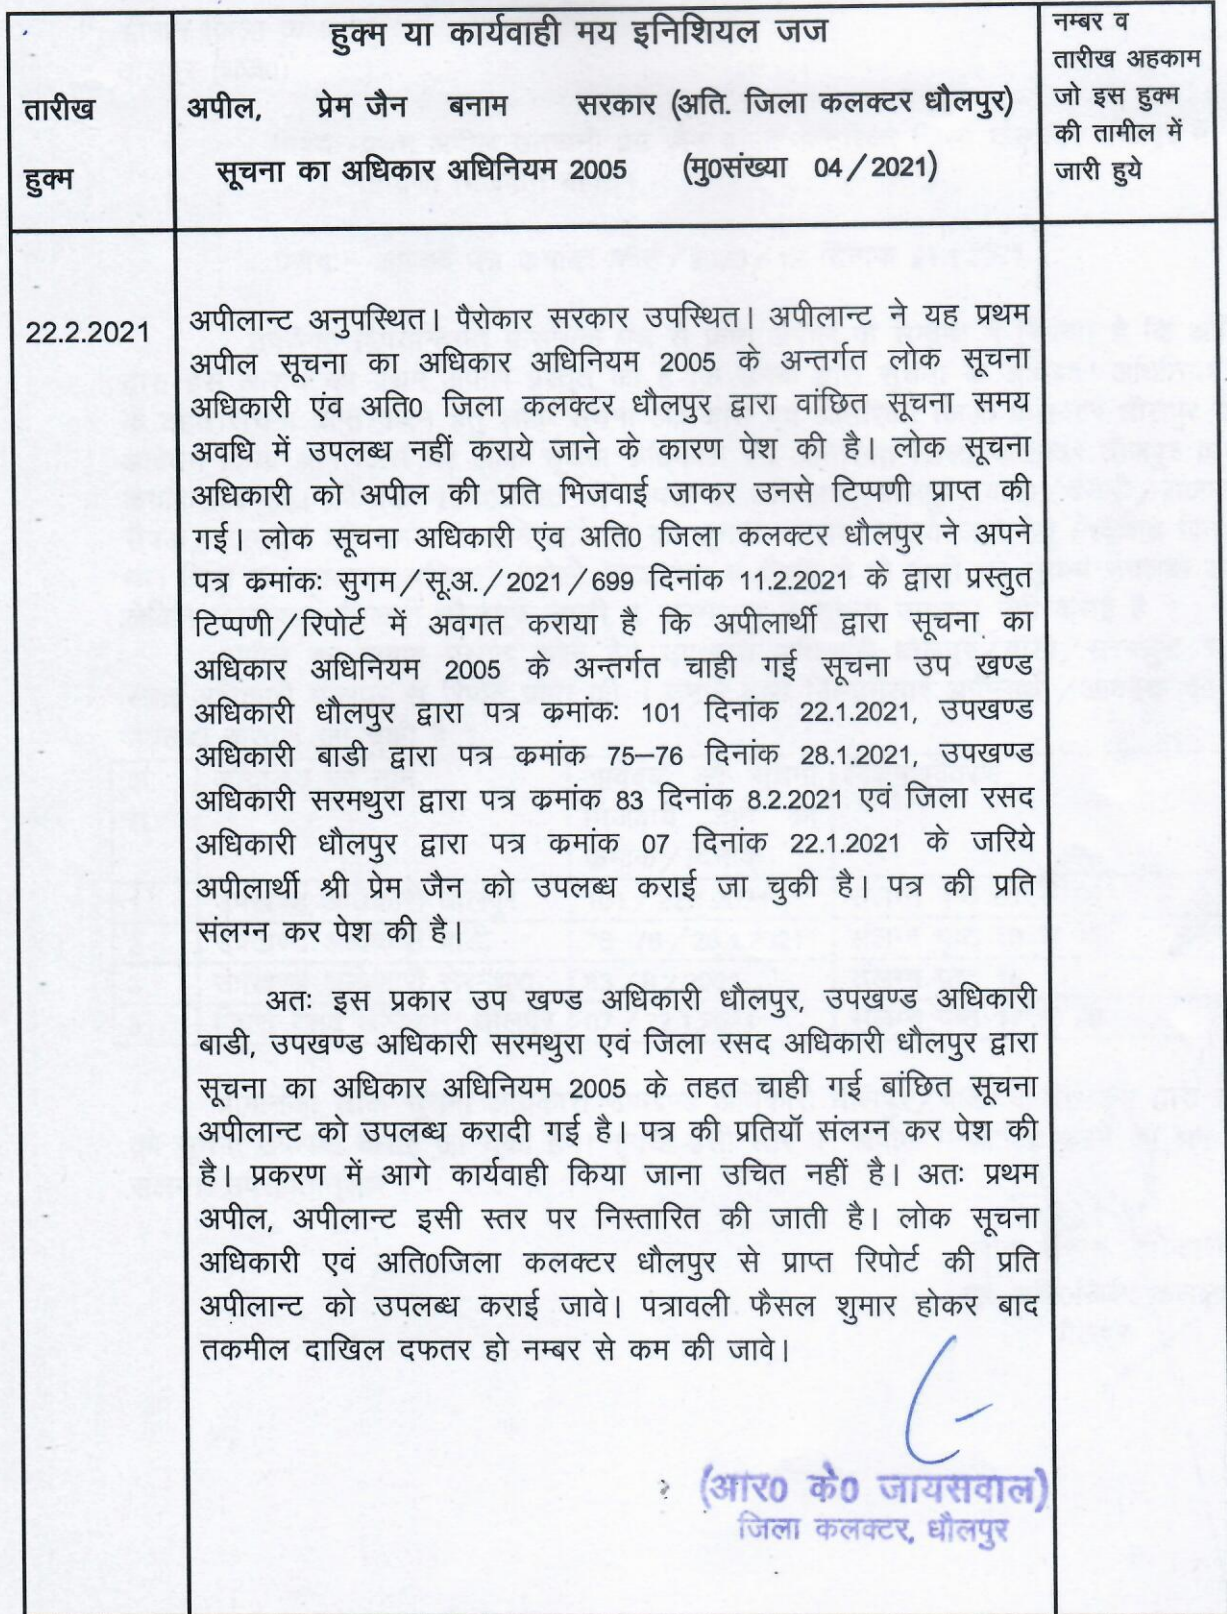 हुक्म या कार्यवाही मय इनिशियल जज
नम्बर व
तारीख अहकाम
जो इस हुक्म
की तामील में
जारी हुये
तारीख
हुक्म
अपील, प्रेम जैन बनाम सरकार (अति. जिला कलक्टर धौलपुर)
सूचना का अधिकार अधिनियम 2005 (मु0संख्या 04/2021)
22.2.2021
अपीलान्ट अनुपस्थित। पैरोकार सरकार उपस्थित। अपीलान्ट ने यह प्रथम
अपील सूचना का अधिकार अधिनियम 2005 के अन्तर्गत लोक सूचना
अधिकारी एंव अति0 जिला कलक्टर धौलपुर द्वारा वांछित सूचना समय
अवधि में उपलब्ध नहीं कराये जाने के कारण पेश की है। लोक सूचना
अधिकारी को अपील की प्रति भिजवाई जाकर उनसे टिप्पणी प्राप्त की
गई। लोक सूचना अधिकारी एंव अति0 जिला कलक्टर धौलपुर ने अपने
पत्र क्रमांकः सुगम/सू.अ./2021/699 दिनांक 11.2.2021 के द्वारा प्रस्तुत
टिप्पणी/रिपोर्ट में अवगत कराया है कि अपीलार्थी द्वारा सूचना का
अधिकार अधिनियम 2005 के अन्तर्गत चाही गई सूचना उप खण्ड
अधिकारी धौलपुर द्वारा पत्र क्रमांकः 101 दिनांक 22.1.2021, उपखण्ड
अधिकारी बाडी द्वारा पत्र क्रमांक 75–76 दिनांक 28.1.2021, उपखण्ड
अधिकारी सरमथुरा द्वारा पत्र क्रमांक 83 दिनांक 8.2.2021 एवं जिला रसद
अधिकारी धौलपुर द्वारा पत्र क्रमांक 07 दिनांक 22.1.2021 के जरिये
अपीलार्थी श्री प्रेम जैन को उपलब्ध कराई जा चुकी है। पत्र की प्रति
संलग्न कर पेश की है।
अतः इस प्रकार उप खण्ड अधिकारी धौलपुर, उपखण्ड अधिकारी
बाडी, उपखण्ड अधिकारी सरमथुरा एवं जिला रसद अधिकारी धौलपुर द्वारा
सूचना का अधिकार अधिनियम 2005 के तहत चाही गई बांछित सूचना
अपीलान्ट को उपलब्ध करादी गई है। पत्र की प्रतियॉ संलग्न कर पेश की
है। प्रकरण में आगे कार्यवाही किया जाना उचित नहीं है। अतः प्रथम
अपील, अपीलान्ट इसी स्तर पर निस्तारित की जाती है। लोक सूचना
अधिकारी एवं अति0जिला कलक्टर धौलपुर से प्राप्त रिपोर्ट की प्रति
अपीलान्ट को उपलब्ध कराई जावे। पत्रावली फैसल शुमार होकर बाद
तकमील दाखिल दफतर हो नम्बर से कम की जावे।
(आर0 के0 जायसवाल)
जिला कलक्टर, धौलपुर